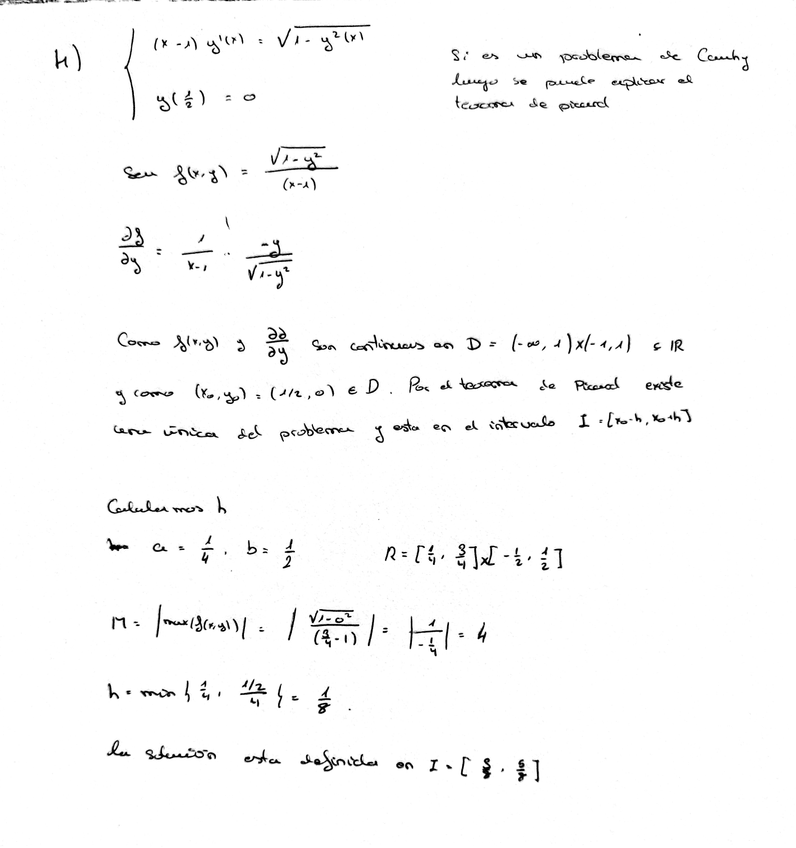 h) { (x-1) y'(x) = √(1 - y²(x))
y(1/2) = 0
Si es un problema de Cauchy
luego se puede aplicar el
teorema de picard
Sea f(x,y) = √(1-y²) / (x-1)
∂f/∂y = 1/(x-1) · -y/√(1-y²)
Como f(x,y) y ∂f/∂y son continuas en D = (-∞, 1)x(-1,1) ⊆ ℝ
y como (x₀,y₀) = (1/2, 0) ∈ D. Por el teorema de Picard existe
una única del problema y esta en el intervalo I = [x₀-h, x₀+h]
Calculamos h
a = 1/4, b = 1/2
R = [1/4, 3/4]x[-1/2, 1/2]
M = |max(f(x,y))| = |√(1-0²) / (3/4 - 1)| = |1 / -1/4| = 4
h = min{1/4, (1/2)/4} = 1/8.
la solución esta definida en I = [3/8, 5/8]